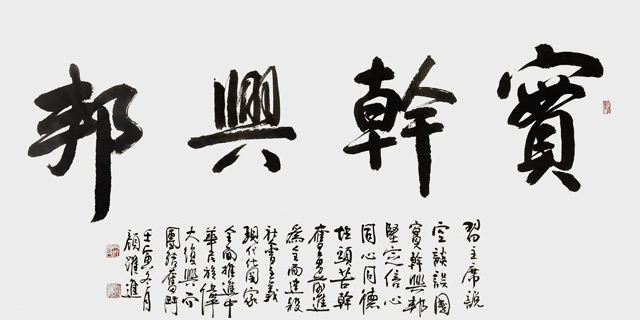 實幹興邦
習主席說
空談誤國
實幹興邦
堅定信心
同心同德
埋頭苦幹
奮勇前進
爲全面建設
社會主義
現代化國家
全面推進中
華民族偉
大復興而
團結奮鬥
壬寅冬月
顏躍進